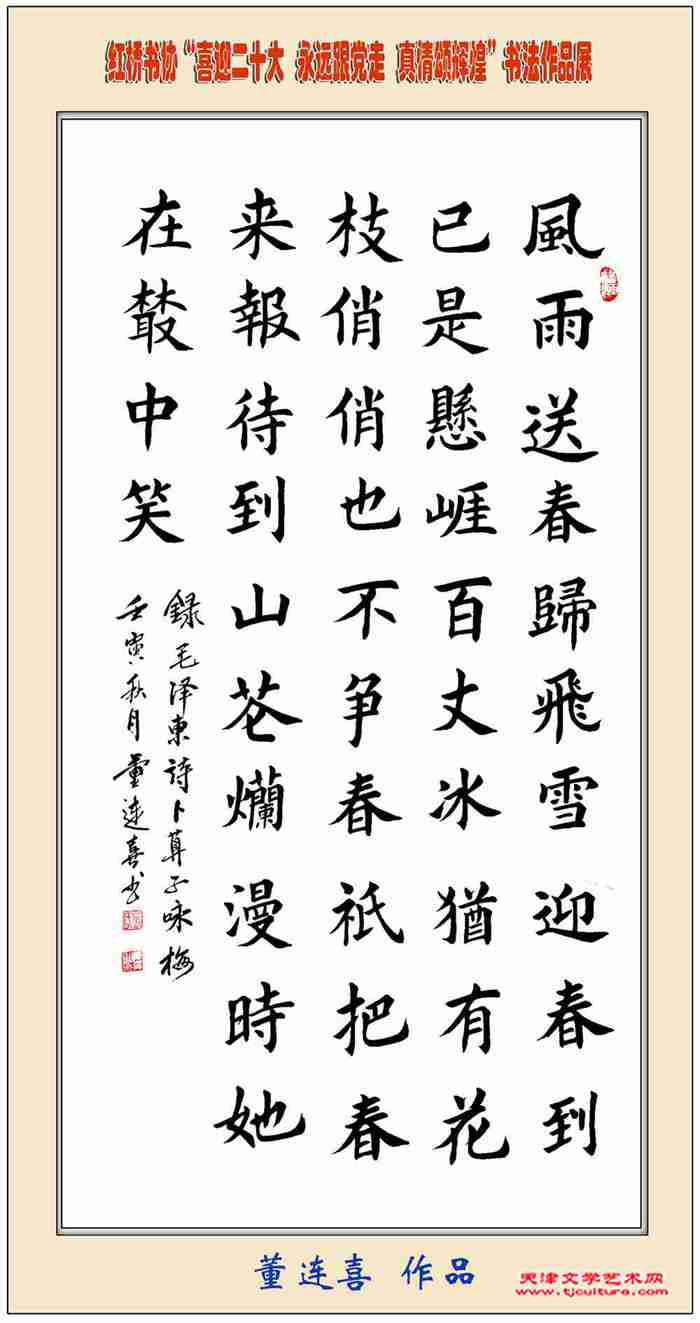 红桥书协“喜迎二十大 永远跟党走 真情颂辉煌”书法作品展
風雨送春歸飛雪迎春到
已是懸崕百丈冰猶有花
枝俏俏也不争春祇把春
来報待到山花爛漫時她
在叢中笑
録毛泽東詩卜算子咏梅
壬寅秋月董连喜书
董连喜 作品
天津文学艺术网
www.tjculture.com